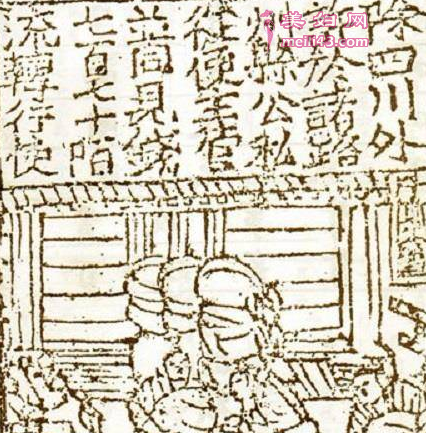 美泊网
meli43.com
除四川外
許於諸路
州縣公私
從便主管
並同見錢
七百七十陌
流轉行使